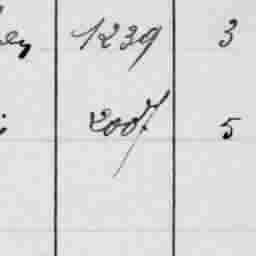 1239 3
2007 5